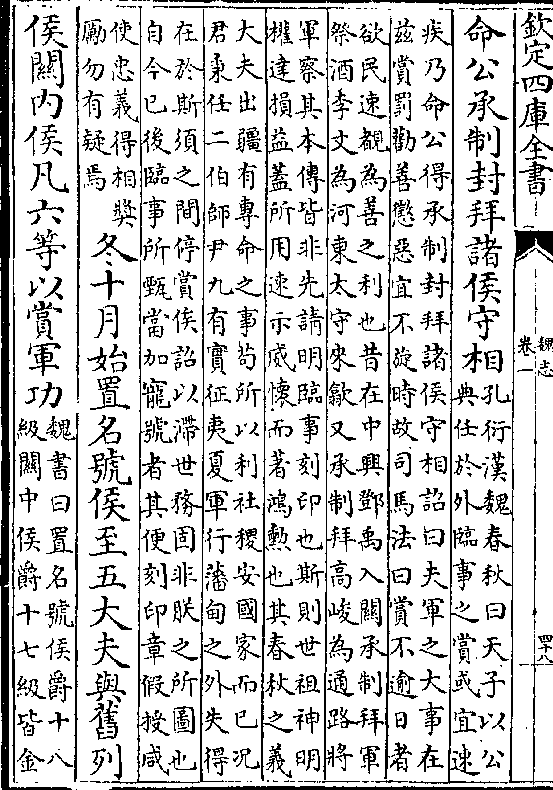 欽定四庫全書
魏志
卷一
四十八
命公承制封拜諸侯守相
孔衍漢魏春秋曰天子以公
典任於外臨事之賞或宜速
疾乃命公得承制封拜諸侯守相詔曰夫軍之大事在
茲賞罰勸善懲惡宜不旋時故司馬法曰賞不逾日者
欲民速覩為善之利也昔在中興鄧禹入關承制拜軍
祭酒李文為河東太守來歙又承制拜高峻為通路將
軍察其本傳皆非先請明臨事刻印也斯則世祖神明
權達損益蓋所用速示威懷而著鴻勲也其春秋之義
大夫出疆有專命之事苟所以利社稷安國家而已况
君秉任二伯師尹九有實征夷夏軍行藩甸之外失得
在於斯須之間停賞俟詔以滯世務固非朕之所圖也
自今已後臨事所甄當加寵號者其便刻印章假授咸
使忠義得相奬
勵勿有疑焉
冬十月始置名號侯至五大夫與舊列
侯關內侯凡六等以賞軍功
魏書曰置名號侯爵十八
級關中侯爵十七級皆金